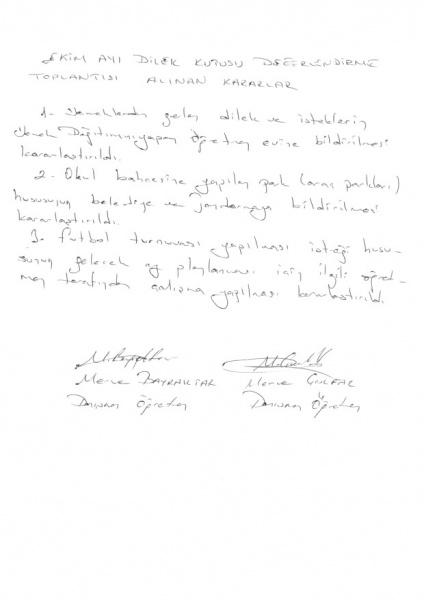 EKİM AYI DİLEK KUTUSU DEĞERLENDİRME
TOPLANTISI ALINAN KARARLAR
1- Yemeklerden gelen dilek ve isteklerin
Yemek Dağıtımını yapan öğretmen evine bildirilmesi
kararlaştırıldı.
2- Okul bahçesine yapılan park (araç parkları)
hususunun belediye ve Jandarmaya bildirilmesi
kararlaştırıldı.
3- futbol turnuvası yapılması isteği husu-
sunun gelecek ay planlanması için ilgili öğret-
men tarafından çalışma yapılması kararlaştırıldı.
Merve BAYRAKTAR Merve
Danışman Öğretmen Danışman Öğretmen